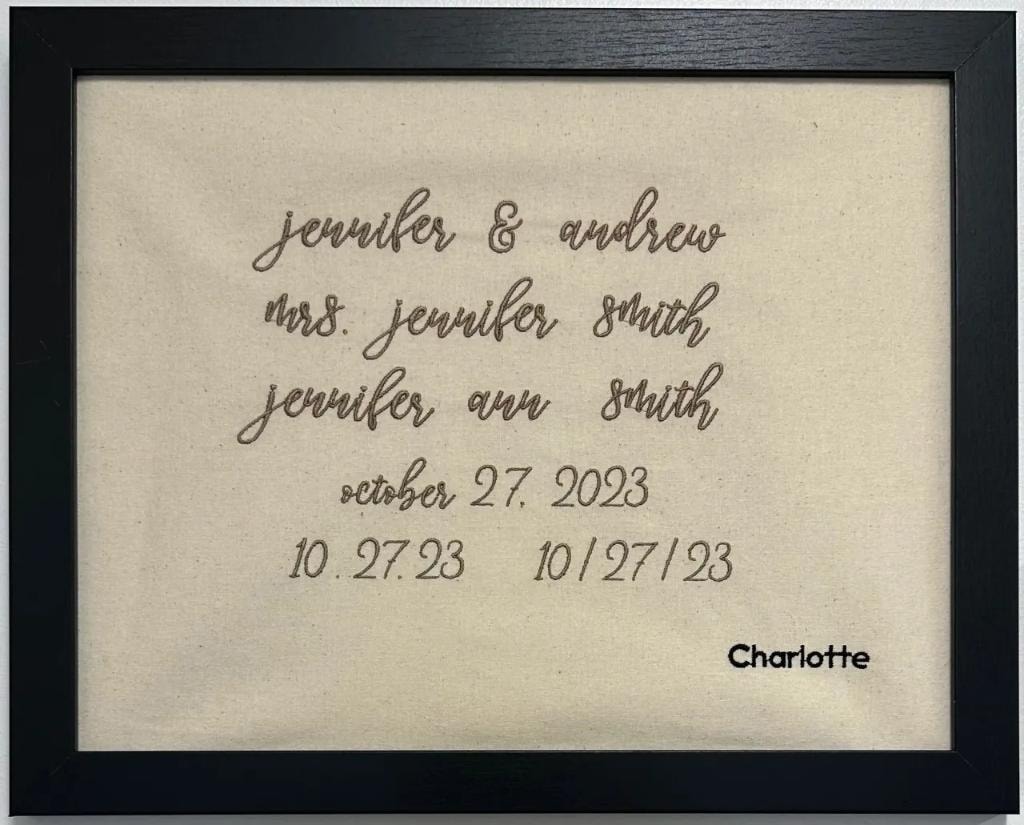 jennifer & andrew
mrs. jennifer smith
jennifer ann smith
october 27. 2023
10.27.23 10/27/23
Charlotte